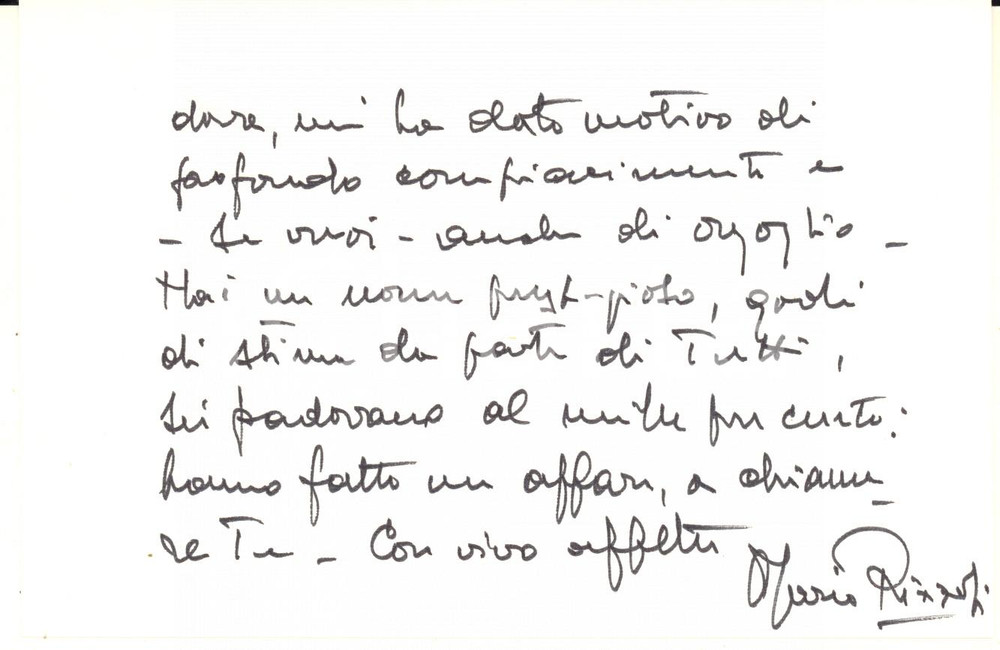 dare, mi ha dato motivo di
profondo compiacimento e
- se vuoi - anche di orgoglio -
Hai un nome prestigioso, godi
di stima da parte di Tutti,
sei padovano al mille per cento:
hanno fatto un affare, a chiama-
re Te - Con vivo affetto
Mario Rizzoli